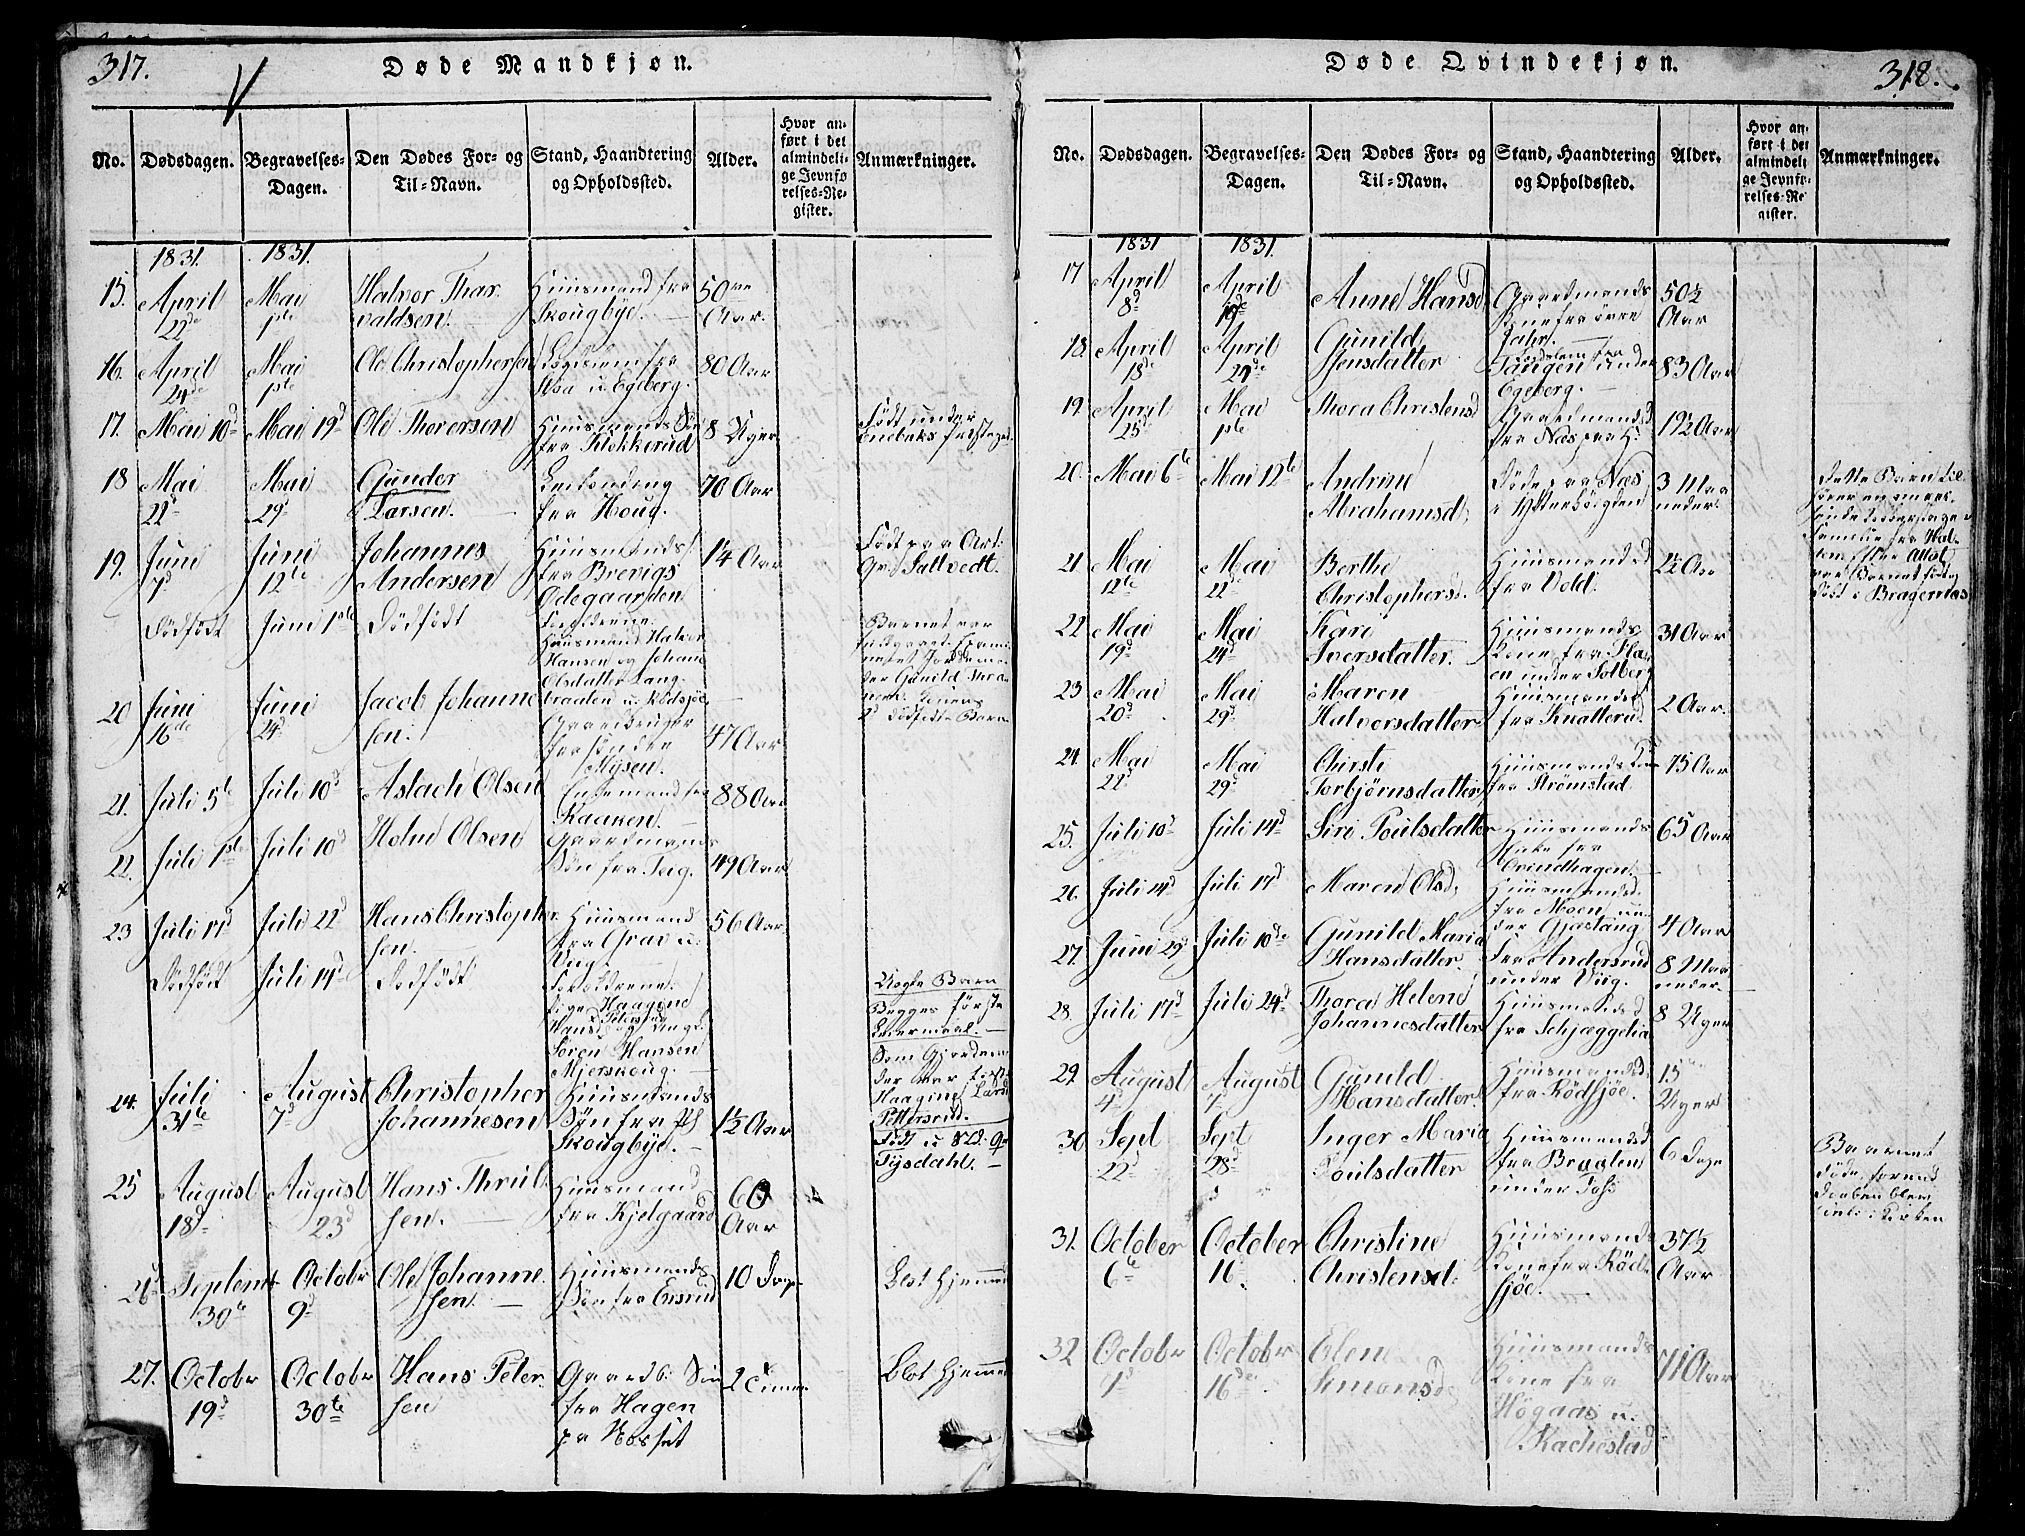 317.
Døde Mandkjøn.
No.
Dødsdagen.
Begravelses-
Dagen.
Den Dødes For- og
Til-Navn.
Stand, Haandtering
og Opholdssted.
Alder.
Hvor an-
ført i det
almindeli-
ge Jevnfø
relses-Re-
gister.
Anmærkninger.
1831. 1831.
15. April 22de Mai 1ste Halvor Thor
valdsen. Huusmand fra
Skougbye. 50 Aar.
16. April 24de Mai 1ste Ole Christophersen
u. Egeberg. 80 Aar
17. Mai 10d Mai 19d Ole Thoresen Huusmands Søn
fra Klokkerud 8 Uger Født under
Enebaks
18 Mai 22d Mai 29d Gunder
Larsen. fra Houg. 70 Aar
19. Juni 7d Juni 12te Johannes
Andersen Huusmands
fra Brevigs
Ødegaarden 14 Aar Født paa
Gr: Sallvedt.
Dødfødt Juni 1ste Dødfødt Forældrene
Huusmand Halvor
Hansen og Johanne
Olsdatter Lang-
braaten u. Rødsjøe Barnet var
Gunild
Dødfødte Barn
20 Juni 16de Juni 24d Jacob Johanne
sen. Gaardbruger
fra søndre
Mysen. 47 Aar
21. Juli 5te Juli 10d Aslach Olsen Enkemand fra
Kaaken. 88 Aar
22. Juli 1ste Juli 10d Holm Olsen Gaardmands
Søn fra Teig. 49 Aar
23 Juli 17d Juli 22d Hans Christopher
sen. Huusmand
fra Grav u.
Viig. 56 Aar
Dødfødt Juli 14d Dødfødt Forældrene
Pige Haagine
Petersrud
Hansd. og Ungk.
Søren Hansen
Mjerskoug. Uægte Barn
Begges første
Leiermaal.
Som Gjordemo
der var
Haagine Larsd
Pettersrud.
24. Juli 31te August 7d Christopher
Johannesen Huusmands
Søn fra
Skougbye. 1½ Aar Født
Tysdahl.
25 August 18d August 23d Hans Thrul
sen. Huusmand
fra Kjelgaard 60
Aar
26 Septembr 30te Octobr 9d Ole Johanne
sen. Huusmands
Søn fra Ensrud 10 Dage Blot hjemme
27. Octobr 19d Octobr 30te Hans Peter
sen Gaardb. Søn
fra Hagen
pa Nosset 2 Timer Blot hjemme
318.
Døde Qvindekjøn.
No.
Dødsdagen.
Begravelses-
Dagen.
Den Dødes For- og
Til-Navn.
Stand, Haandtering
og Opholdssted.
Alder.
Hvor an-
ført i det
almindeli
ge Jevnfø-
relses-Re
gister.
Anmærkninger.
1831 1831.
17 April 8d April Anne Hansd Gaardmands
Kone fra øvre
Jahr. 50½
Aar
18. April 18d April 24de Gunild
Jensdatter
Tangen under
Egeberg. 83 Aar
19. April 25d Mai 1ste Thora Christensd Gaardmandsd
fra Næs paa 19½ Aar
20. Mai 6te Mai 12te Andrine
Abrahamsd. Døde paa Næs
i Ytterbøigden 3 Maa
neder. Dette Barn til
hører en
Barnet
født i Bragernæs
21 Mai 12te Mai 22d Berthe
Christophersd. Huusmandsd
fra Vold. 2½ Aar
22 Mai 19d Mai 24d Kari
Iversdatter. Huusmands
Kone fra
en under Solberg 31 Aar
23 Mai 20d Mai 29d Maren
Halvorsdatter Huusmandsd
fra Knatterud 2 Aar.
24. Mai 22d Mai 29d Chirsti
Torbjørnsdatter Huusmands
fra Strømstad 75 Aar
25. Juli 10d Juli 14d Siri Poulsdatter Huusmands
Enke fra
Qvindhagen. 65 Aar
26. Juli 14d Juli 17d Maren Olsd. Huusmandsd.
fra Moen un
der Gjastang 4 Aar
27. Juni 29d Juli 10de Gunild Maria
Hansdatter. fra Andersrud
under Viig. 8 Maa
neder.
28. Juli 17d Juli 24d Thora Helene
Johannesdatter Huusmandsd
fra Schjæggelia 8 Uger
29. August 4d August 7d Gunild
Hansdatter. Huusmandsd.
fra Rødsjøe. 15
Uger
30 Sept 22d Sept 28d Inger Maria
Poulsdatter Huusmandsd
fra Braaten
under 6 Dage Baarnet
døde forend
Daaben blev
i Kirken
31. October 6te October 16 Christine
Christensd. Huusmands
Kone fra Rød-
sjøe. 37½
Aar
32 Octobr 1d Octobr 16de Elen
Simonsd. Huusmands
Kone fra
Høgaas u.
Kachestad 71 Aar